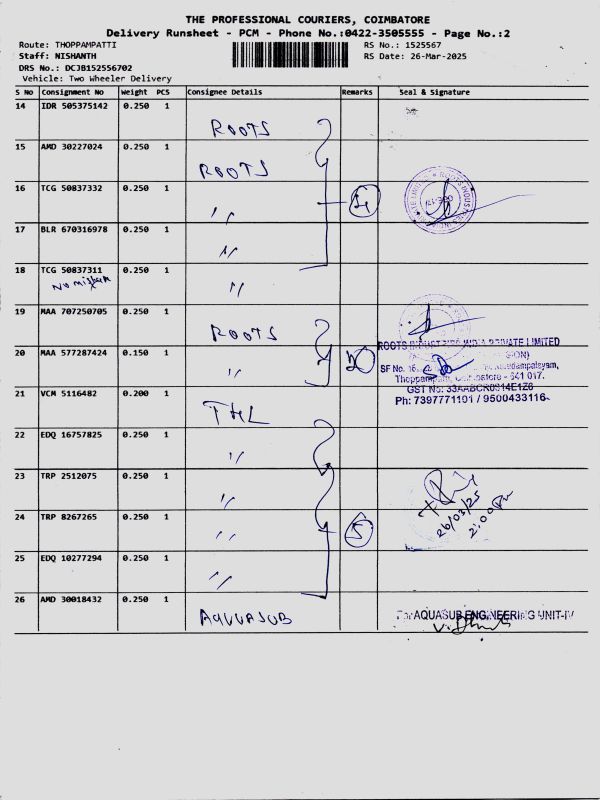 THE PROFESSIONAL COURIERS, COIMBATORE
Delivery Runsheet - PCM - Phone No.:0422-3505555 - Page No.:2
Route: THOPPAMPATTI
RS No.: 1525567
Staff: NISHANTH
RS Date: 26-Mar-2025
DRS No.: DCJB152556702
Vehicle: Two Wheeler Delivery
S No Consignment No Weight PCS Consignee Details Remarks Seal & Signature
14 IDR 505375142 0.250 1
ROOTS
15 AMD 30227024 0.250 1
ROOTS
16 TCG 50837332 0.250 1 〃
17 BLR 670316978 0.250 1 〃
18 TCG 50837311 0.250 1 〃
19 MAA 707250705 0.250 1
ROOTS
ROOTS INDUSTRIES INDIA PRIVATE LIMITED
20 MAA 577287424 0.150 1 〃
SF No.
Thoppampatti, Coimbatore - 641 017.
21 VCM 5116482 0.200 1
THL
Ph: 7397771101 / 9500433116
22 EDQ 16757825 0.250 1 〃
23 TRP 2512075 0.250 1 〃
24 TRP 8267265 0.250 1 〃 5
26/03/25
2:00 Pm
25 EDQ 10277294 0.250 1 〃
26 AMD 30018432 0.250 1
AQUUASUB
For AQUASUB ENGINEERING UNIT-IV